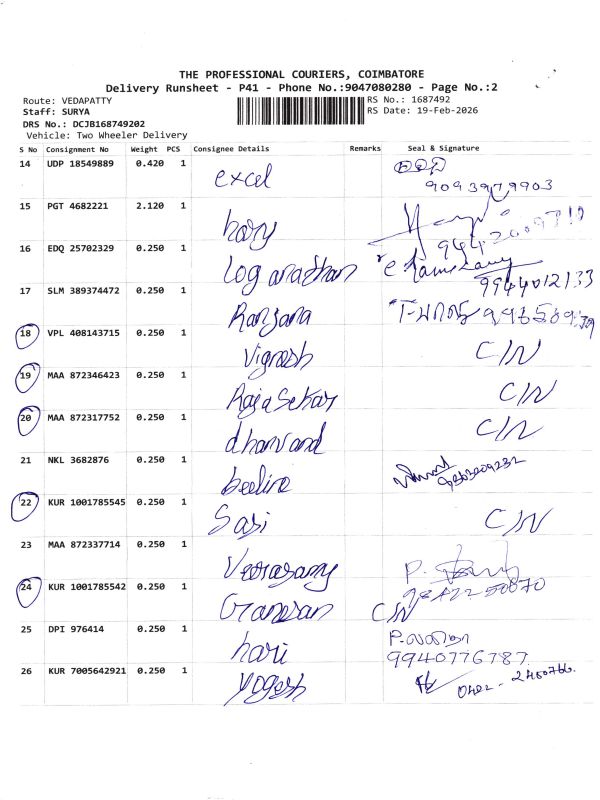 THE PROFESSIONAL COURIERS, COIMBATORE
Delivery Runsheet - P41 - Phone No.:9047080280 - Page No.:2
Route: VEDAPATTY
RS No.: 1687492
Staff: SURYA
RS Date: 19-Feb-2026
DRS No.: DCJB168749202
Vehicle: Two Wheeler Delivery
S No Consignment No Weight PCS Consignee Details Remarks Seal & Signature
14 UDP 18549889 0.420 1 excel
9093979903
15 PGT 4682221 2.120 1 hary
16 EDQ 25702329 0.250 1 Loganathan
9944012133
17 SLM 389374472 0.250 1 Ranjana
18 VPL 408143715 0.250 1 Vignesh C/N
19 MAA 872346423 0.250 1 RajaSekar C/N
20 MAA 872317752 0.250 1 C/N
21 NKL 3682876 0.250 1 beeline
22 KUR 1001785545 0.250 1 Sasi C/N
23 MAA 872337714 0.250 1
P.
9842250870
24 KUR 1001785542 0.250 1 C/N
25 DPI 976414 0.250 1 hari
9940776787
26 KUR 7005642921 0.250 1 yogesh
0422 - 2460766.